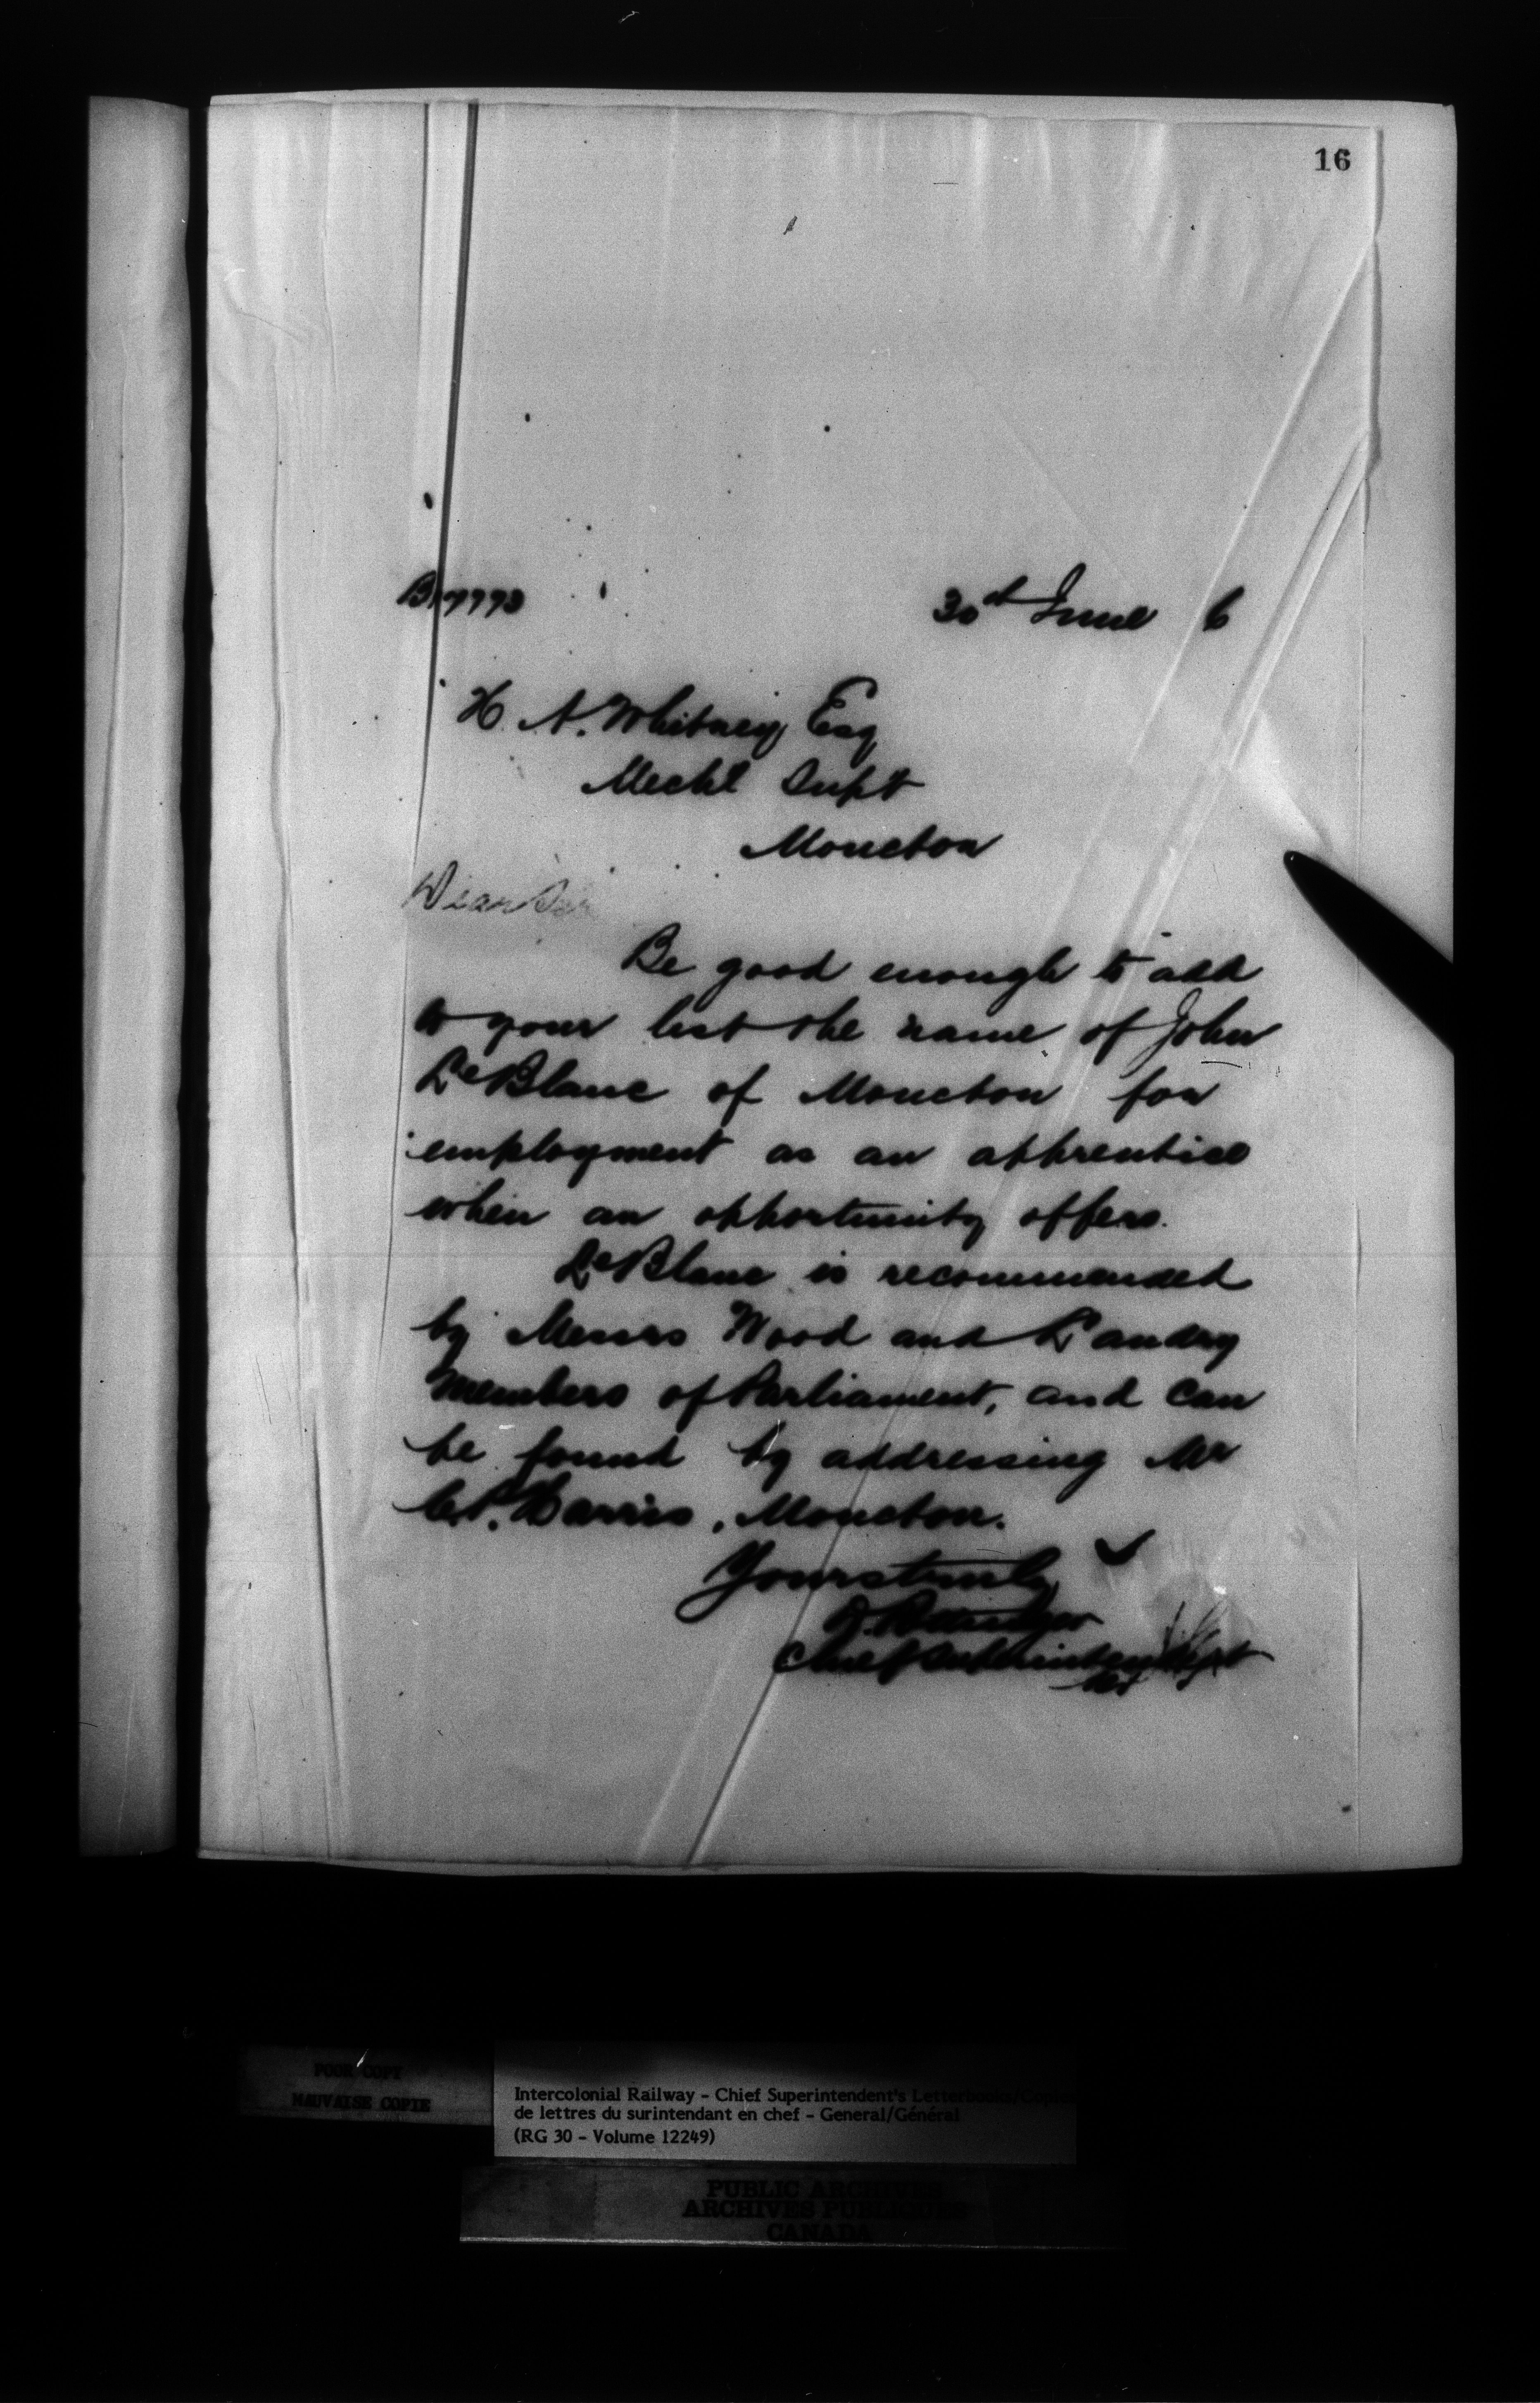 16
30th June 6
H. A. Whitney Esq
Mechl Supt
Moncton
Dear Sir
Be good enough to add
to your list the name of John
LeBlanc of Moncton for
employment as an apprentice
when an opportunity offers.
LeBlanc is recommended
by Messrs Wood and Landry
members of Parliament, and can
be found by addressing Mr
C.P. Harris, Moncton.
Yours truly
D. Pottinger
Chief Superintendent
POOR COPY
MAUVAISE COPIE
Intercolonial Railway - Chief Superintendent's Letterbooks/Copies
de lettres du surintendant en chef - General/Général
(RG 30 - Volume 12249)
PUBLIC ARCHIVES
ARCHIVES PUBLIQUES
CANADA